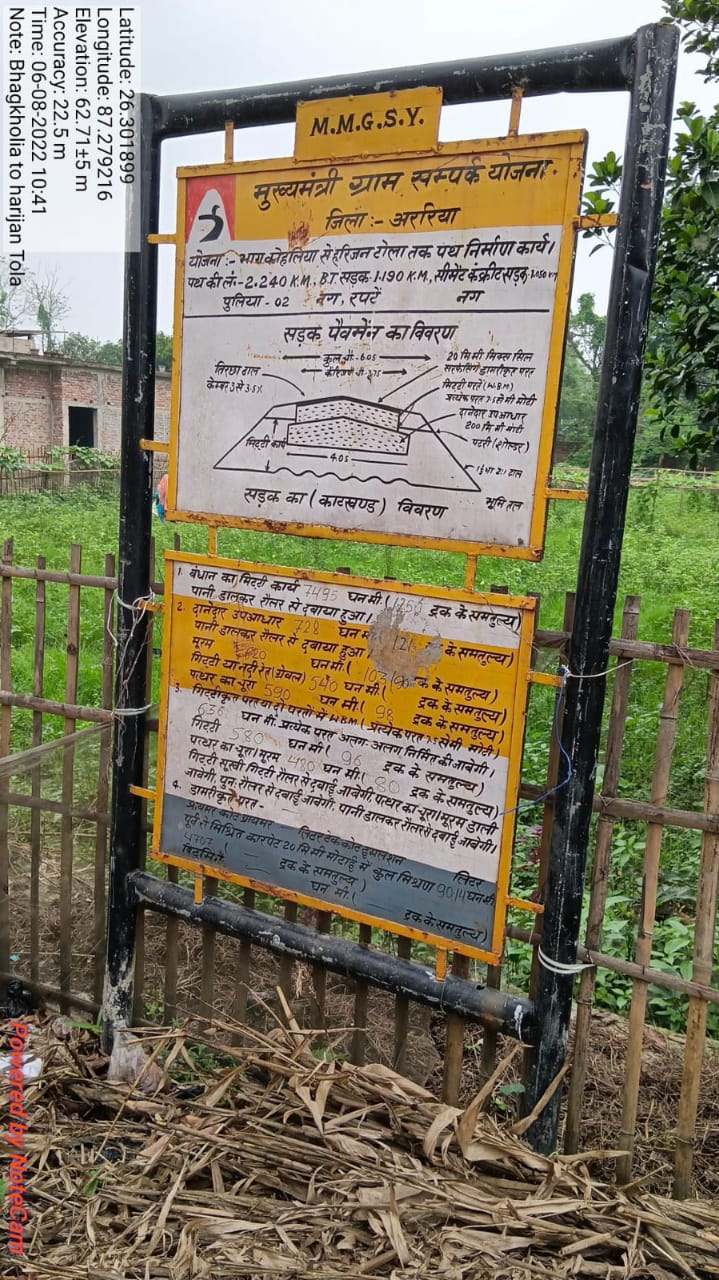 Latitude: 26.301899
Longitude: 87.279216
Elevation: 62.71±5 m
Accuracy: 22.5 m
Time: 06-08-2022 10:41
Note: Bhagkholia to harijan Tola
M.M.G.S.Y.
मुख्यमंत्री ग्राम सम्पर्क योजना
जिला :- अररिया
योजना :- भाग कोहलिया से हरिजन टोला तक पथ निर्माण कार्य।
पथ की लं.-2.240 K.M., B.T सड़क-1.190 K.M., सीमेंट कंक्रीट सड़क-1.050 K.M
पुलिया - 02 नग, रपटें नग
सड़क पैवमेन्ट का विवरण
कुल चौ.-6.05
कैरिजवे चौ.-3.75
तिरछा ढाल
केम्बर 3 से 3.5%
20 मि मी मिक्स सिल
सरफेसिंग डामरीकृत परत
गिट्टी परतें (W.B.M)
प्रत्येक परत 7.5 से मी मोटी
दानेदार उपआधार
200 मि मी मोटी
पटरी (शोल्डर)
मिट्टी कार्य
4.05
भूमि तल
सड़क का ( काटखण्ड ) विवरण
1. बंधान का मिट्टी कार्य 7495 घन मी. ( ट्रक के समतुल्य)
पानी डालकर रौलर से दबाया हुआ।
2. दानेदार उपआधार 728 घन मी ( के समतुल्य)
पानी डालकर रौलर से दबाया हुआ
मूरम घन मी. ( के समतुल्य)
गिट्टी या नदी रेत (ग्रेवल) 540 घन मी. ( ट्रक के समतुल्य)
पत्थर का चूरा 590 घन मी. ( 98 ट्रक के समतुल्य)
3. गिट्टीकृत परत या दो परतों में W.B.M ( प्रत्येक परत 7.5 से मी मोटी)
636 घन मी. प्रत्येक परत अलग-अलग निर्मित की जावेगी।
गिट्टी 580 घन मी. ( 96 ट्रक के समतुल्य)
पत्थर का चूरा/मूरम 480 घन मी. ( 80 ट्रक के समतुल्य)
गिट्टी सूखी गिट्टी रौलर से दबाई जावेगी, पत्थर का चूरा/मूरम डाली
जावेगी, पुनः रौलर से दबाई जावेगी, पानी डालकर रौलर से दबाई जावेगी।
4. डामरीकृत परत-
लिटर
पूर्व से मिश्रित कारपेट 20 मि मी मोटाई में कुल मिश्रण घन मी.
4707 ट्रक के समतुल्य)
घन मी. (
ट्रक के समतुल्य)
Powered by NoteCam